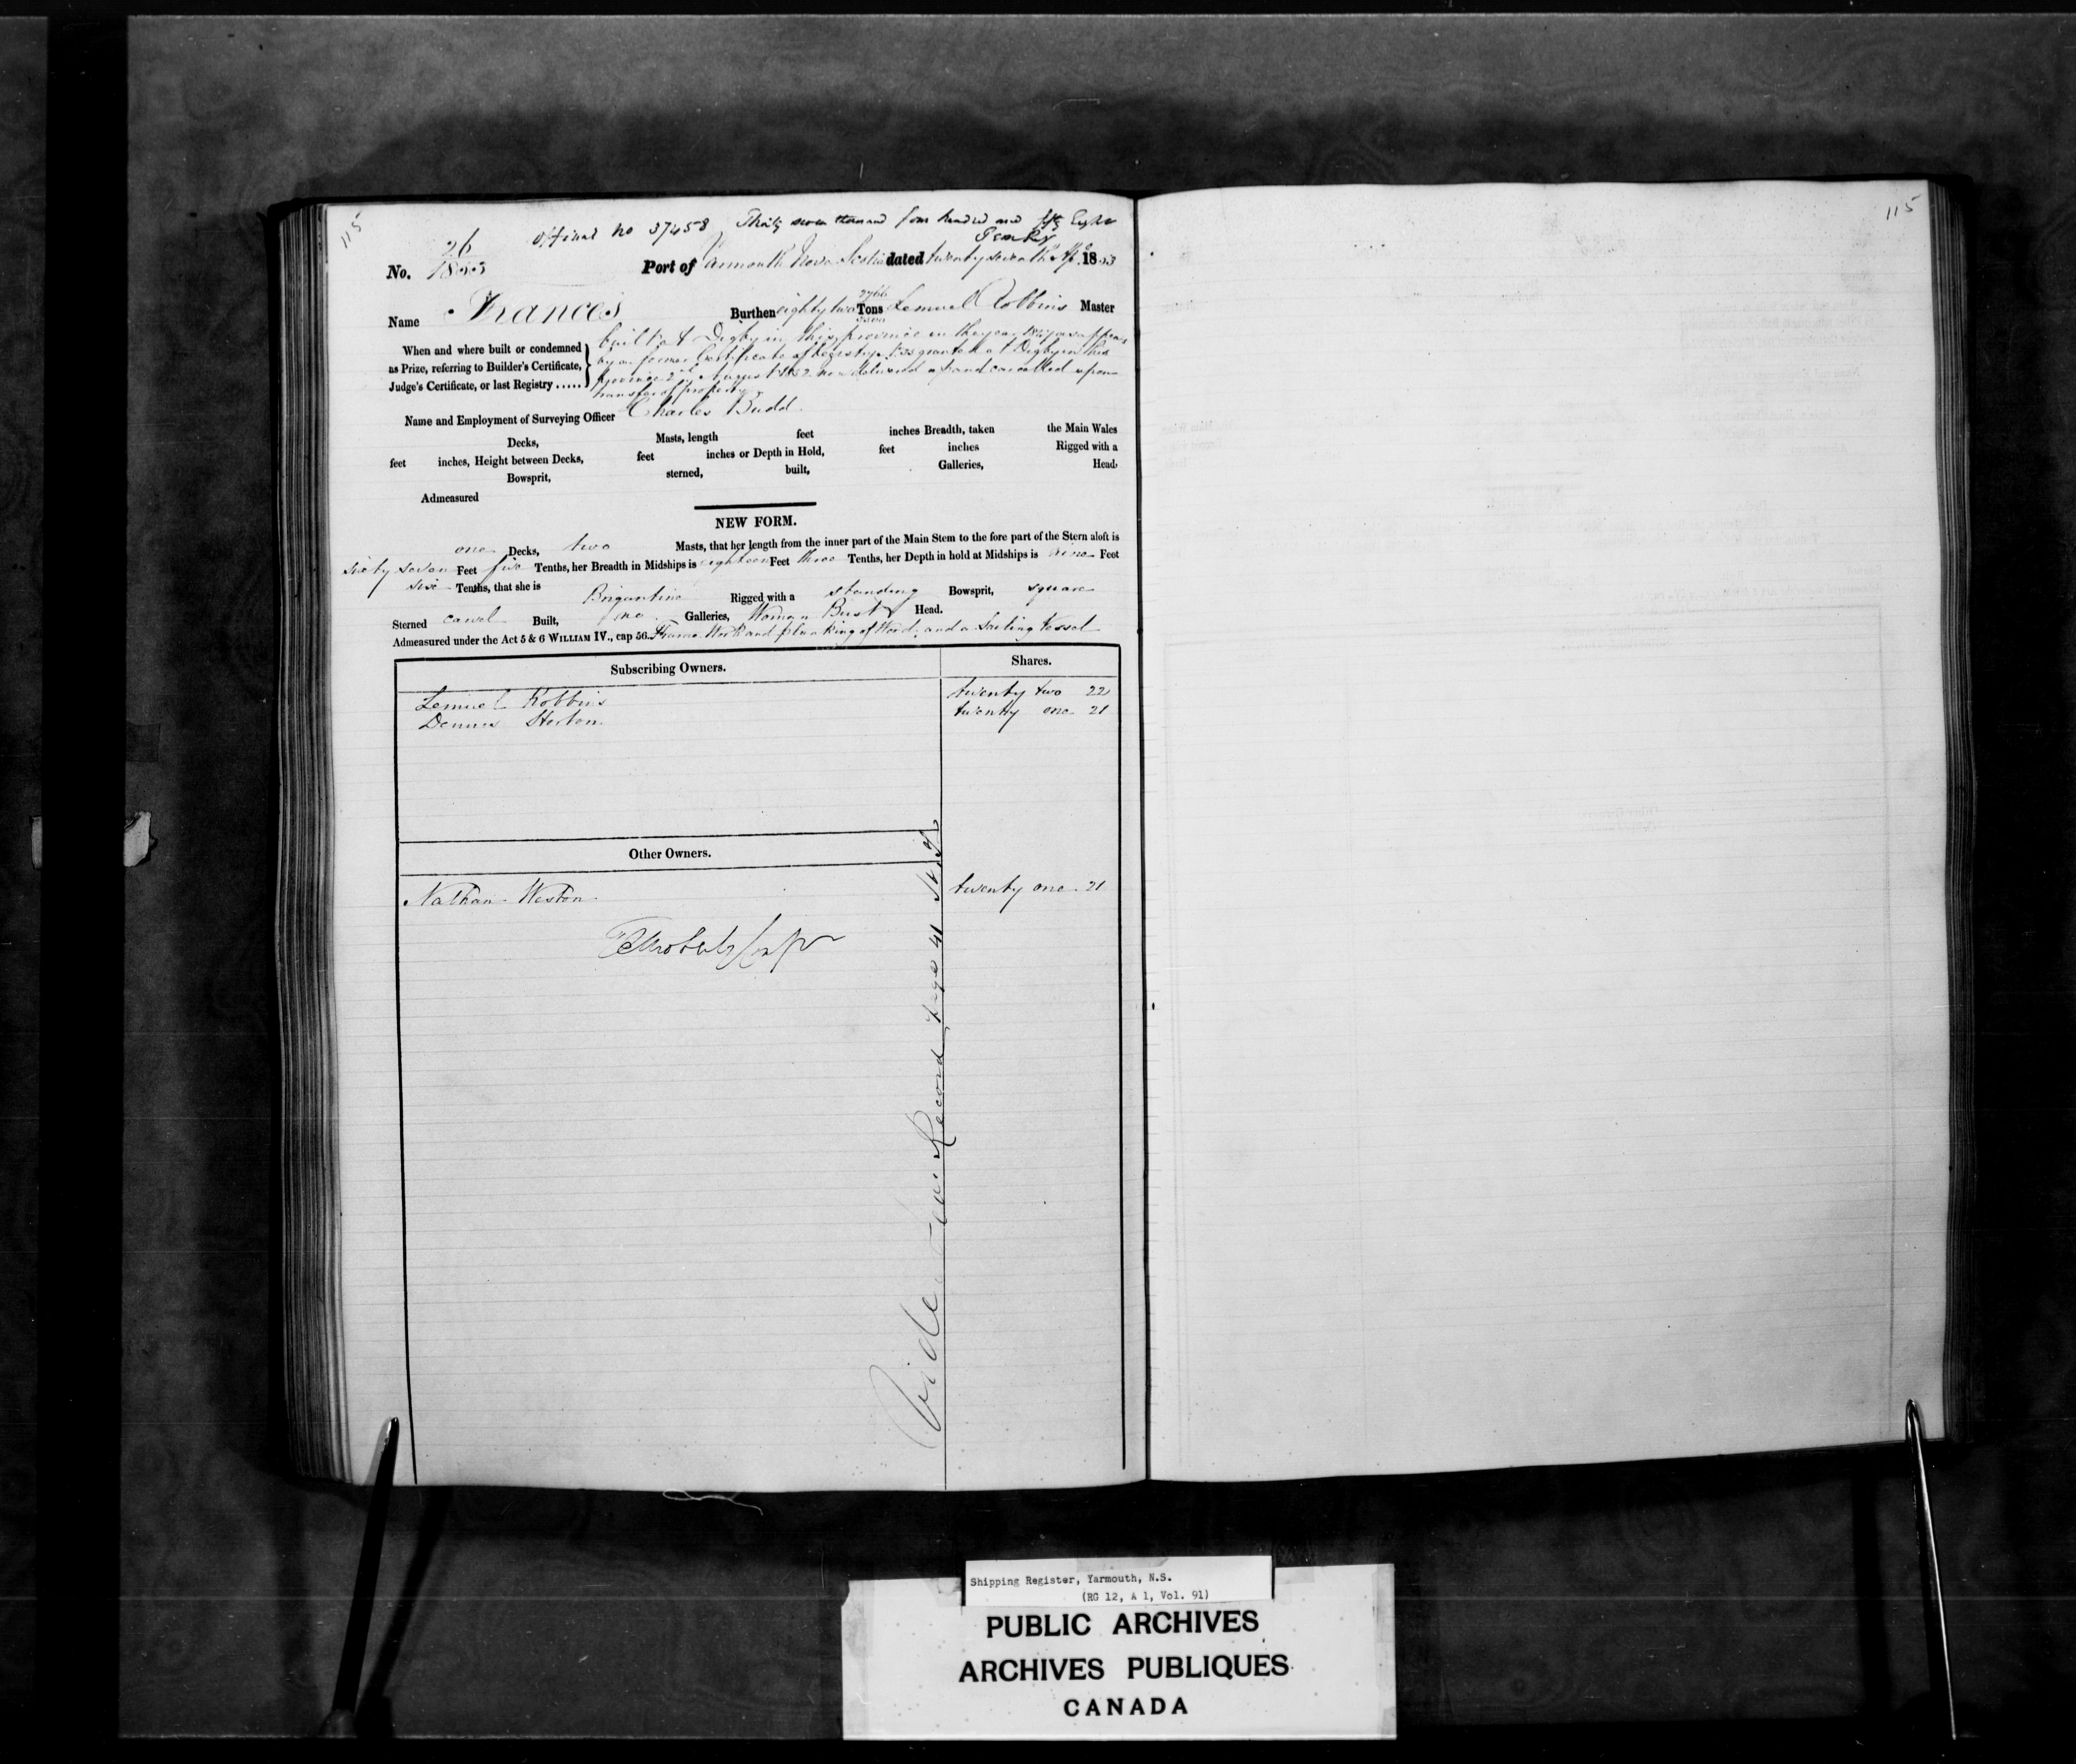 115
Official no 37458 Thirty seven thousand four hundred and fifty Eight
No. 26 1853 Port of Yarmouth Nova Scotia dated twenty seventh 1853
Name Frances Burthen eighty two Tons Lemuel Robbins Master
When and where built or condemned as Prize, referring to Builder's Certificate, Judge's Certificate, or last Registry .....
built at Digby in this province in the year as appears
by a former Certificate of Registry granted at Digby in this
province 2nd August 1852 now delivered up and cancelled upon
transfer of property
Name and Employment of Surveying Officer Charles Budd
Decks, Masts, length feet inches Breadth, taken the Main Wales
feet inches, Height between Decks, feet inches or Depth in Hold, feet inches Rigged with a
Bowsprit, sterned, built, Galleries, Head,
Admeasured
NEW FORM.
one Decks, two Masts, that her length from the inner part of the Main Stem to the fore part of the Stern aloft is
sixty seven Feet five Tenths, her Breadth in Midships is eighteen Feet three Tenths, her Depth in hold at Midships is nine Feet
six Tenths, that she is Brigantine Rigged with a standing Bowsprit, square
Sterned carvel Built, no Galleries, Woman Bust Head.
Admeasured under the Act 5 & 6 WILLIAM IV., cap 56. Frame Work and planking of Wood, and a Sailing Vessel
Subscribing Owners. Shares.
Lemuel Robbins twenty two 22
Dennis Horton twenty one 21
Other Owners.
Nathan Weston twenty one 21
Vide Record Page 41
115
Shipping Register, Yarmouth, N.S.
(RG 12, A 1, Vol. 91)
PUBLIC ARCHIVES
ARCHIVES PUBLIQUES
CANADA